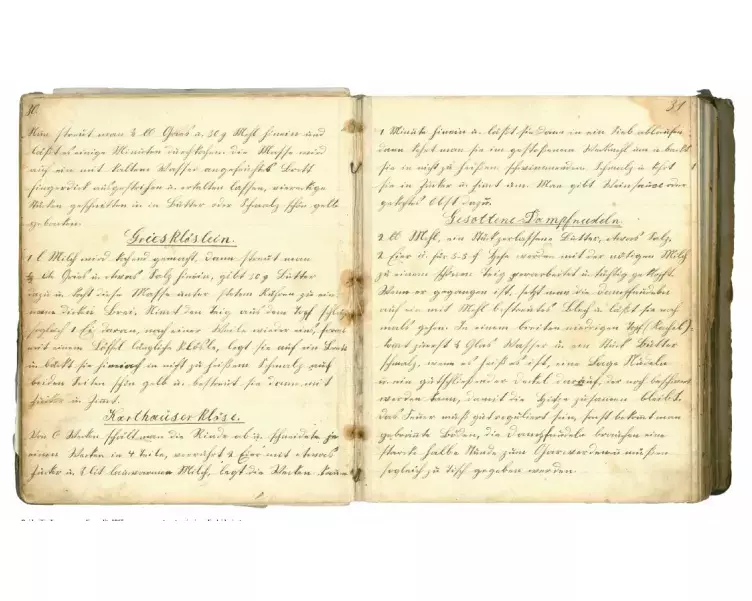 30.
Man streut man ½ ℔ Gries u. 50 g Mehl hinein und
läßt es einige Minuten durchkochen die Masse wird
auf ein mit kaltem Wasser angefeuchtetes Brett
fingerdick aufgestrichen u. erkalten lassen, viereckige
Stücken geschnitten in in Butter oder Schmalz schön gelb
gebacken.
Griesklöslein.
1 l Milch wird kochend gemacht, dann streut man
℔ Gries u. etwas Salz hinein, gibt 50 g Butter
dazu u. kocht diese Masse unter stetem Rühren zu ein
dicken Brei. Nimt den Teig aus dem Topf
sogleich 1 Ei daran, nach einer Weile wieder eins,
mit einem Löffel längliche Klösle, legt sie auf ein Brett
u. bäckt sie in nicht zu heißem Schmalz auf
beiden Seiten schön gelb u. bestreut sie dann mit
Zucker u. Zimt.
Karthäuserklöse.
Von 6 Wecken schält man die Rinde ab u. schneidet je
einen Wecken in 4 Teile, verrührt 2 Eier mit etwas
Zucker u. ½ Lit lauwarmen Milch, legt die Wecken
31
1 Minute hinein u. läßt sie dann in ein Sieb ablaufen
dann kehrt man sie in gestoßenem Weckmehl um u. backt
sie in nicht zu heißem schwimmenden Schmalz u. kehrt
sie in Zucker u. Zimt um. Man gibt Weinsauce oder
gekochtes Obst dazu.
Gesottene Dampfnudeln.
2 ℔ Mehl, ein Stück zerlassene Butter, etwas Salz,
2 Eier u. für 5 Hefe werden mit der nötigen Milch
zu einem schönen Teig verarbeitet u. tüchtig geklopft.
Wenn er gegangen ist, setzt man die Dampfnudeln
auf ein mit Mehl bestreutes Blech u. läßt sie noch
mals gehen. In einem breiten niedrigen Topf (Kachel)
2 Glas Wasser u. ein Stück Butter
schmalz, wenn es heiß ist, eine Lage Nudeln
u. ein gutschließender Deckel darauf, der noch beschwert
werden kann, damit die Hitze zusammen bleibt.
das Feuer muß gut reguliert sein, sonst bekomt man
gebrannte Böden, die Dampfnudeln brauchen eine
starke halbe Stunde zum Garwerden u. müssen
sogleich zu Tisch gegeben werden.